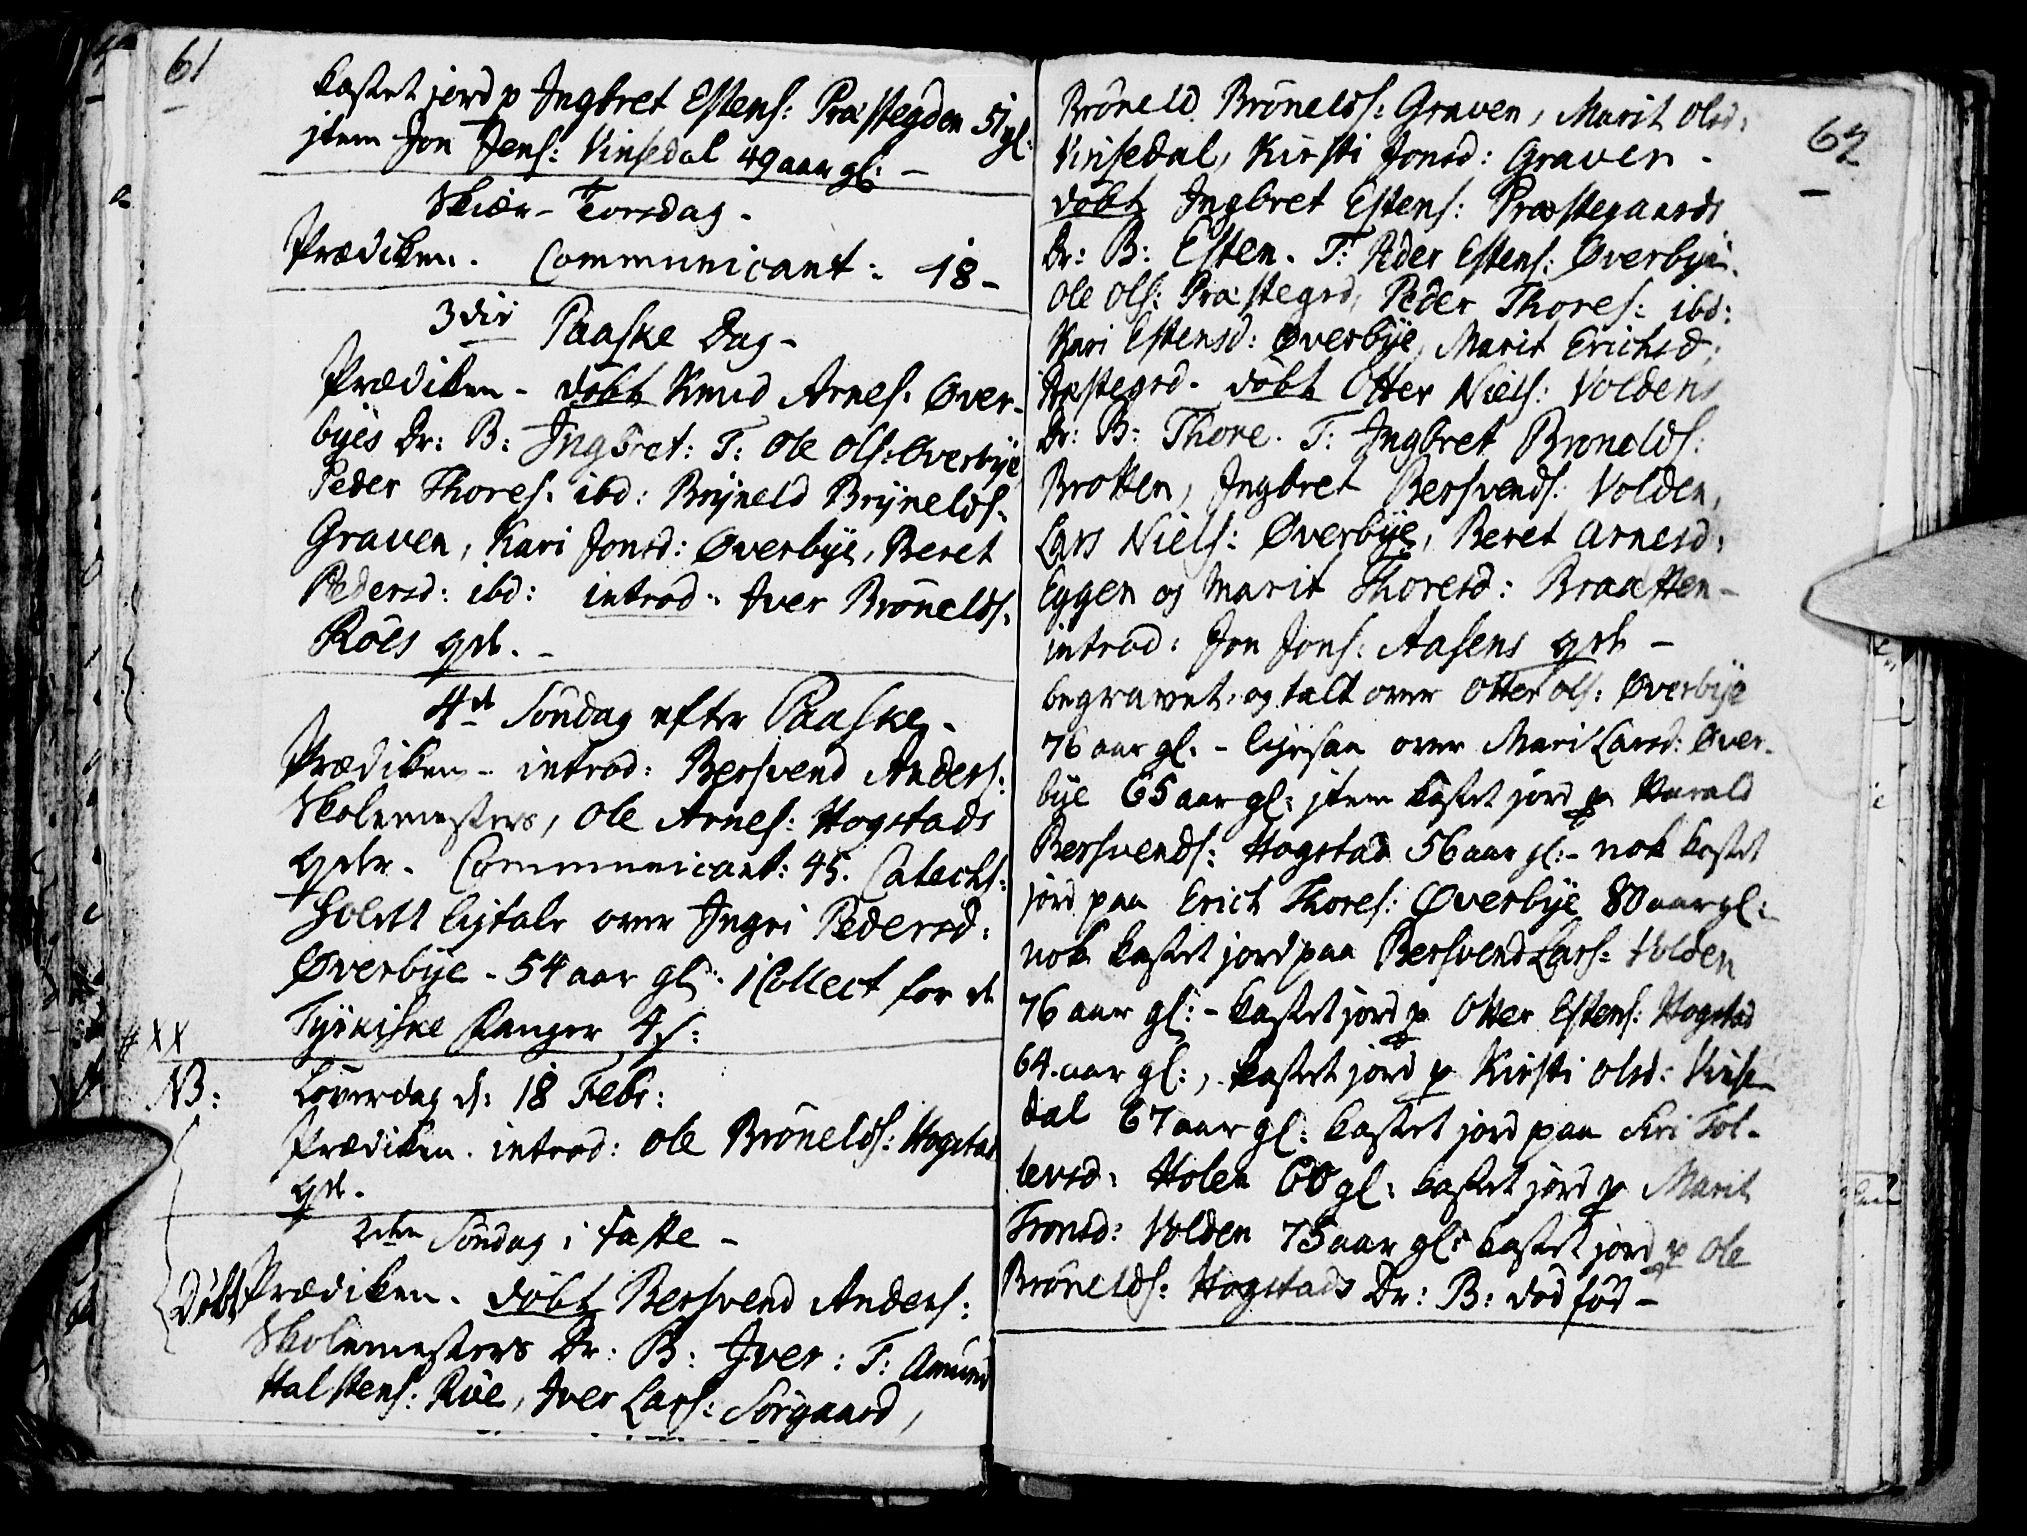 61
kastet jord p Ingbret Estens: Præstegden 51 gl:
jtem Jon Jens: Vinsedal 49 aar gl: –
Skiær–Torsdag –
Prædiken. Communicant: 18 –
3die Paaske Dag –
Prædiken – døbt Knud Arnes: Øver-
byes Dr: B: Ingbret: T: Ole Ols: Øverbÿe
Peder Thores: ibd: Brÿneld Brÿnelds:
Graven, Kari Jonsd: Øverbÿe, Beret
Pedersd: ibd: introd: Iver Brönelds:
Röes qde. –
4de Söndag efter Paaske –
Prædiken – introd: Bersvend Anders:
Skolemesters, Ole Arnes: Hogstads
qder. Communicant: 45. Catechs:
holdt ligtale over Ingri Pedersd:
Øverbÿe – 54 aar gl: Collect for de
Tÿrkiske Fanger 4 s:
# XX
NB: Löverdag d: 18 Febr:
Prædiken. introd: Ole Brönelds: Hogstad
qde.
2den Söndag i Faste –
Döbt Prædiken. döbt Bersvend Anders:
Skolemesters Dr: B: Iver: T: Amund
Halstens: Röe, Iver Lars: Sörgaard,
62
Bröneld Brönelds: Graven, Marit Olsd:
Vinsedal, Kirsti Jonsd: Graven –
döbt Ingbret Estens: Præstegaards
Dr: B: Esten. T: Peder Estens: Øverbye.
Ole Ols: Præstegrd, Peder Thores: ibd:
Kari Estensd: Øverbÿe, Marit Erichsd:
Præstegrd. döbt Otter Niels: Voldens
Dr: B: Thore. T: Ingbret Bronelds:
Brotten, Ingbret Bersvends: Volden,
Lars Niels: Øverbÿe, Beret Arnesd:
Eggen og Marit Thoresd: Braatten –
introd: Jon Jons: Aasens qde –
begravet, og talt over Otter Ols: Øverbÿe
76 aar gl. – ligesaa over Mari Larsd: Øver-
bÿe 65 aar gl: jtem kastet jord p Harald
Bersvends: Hogstad 56 aar gl: – nok kastet
jord paa Erich Thores: Øverbÿe 80 aar gl:
nok kastet jord paa Bersvend Lars: Volden
76 aar gl: – kastet jord p Otter Estens: Hogstad
64 aar gl:, kastet jord p Kirsti Olsd: Vinse-
dal 67 aar gl: kastet jord paa Siri Tol-
levsd: Holen 60 gl: kastet jord p Marit
Tronsd: Volden 75 aar gl: kastet jord p Ole
Brönelds: Hogstads Dr: B: död föd –